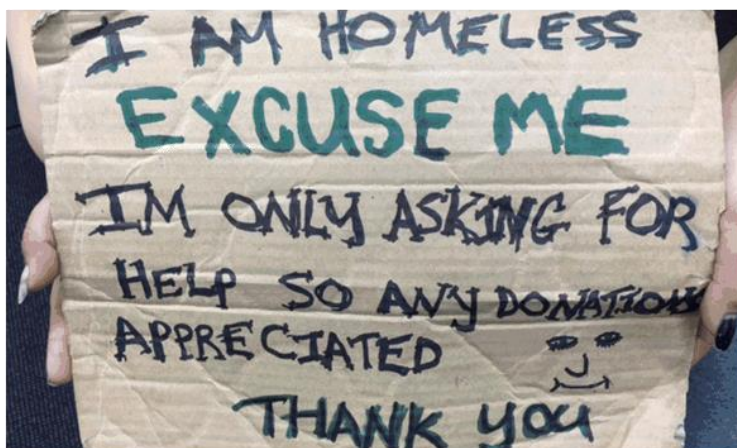 I AM HOMELESS
EXCUSE ME
IM ONLY ASKING FOR
HELP SO ANY DONATIONS
APPRECIATED
THANK YOU